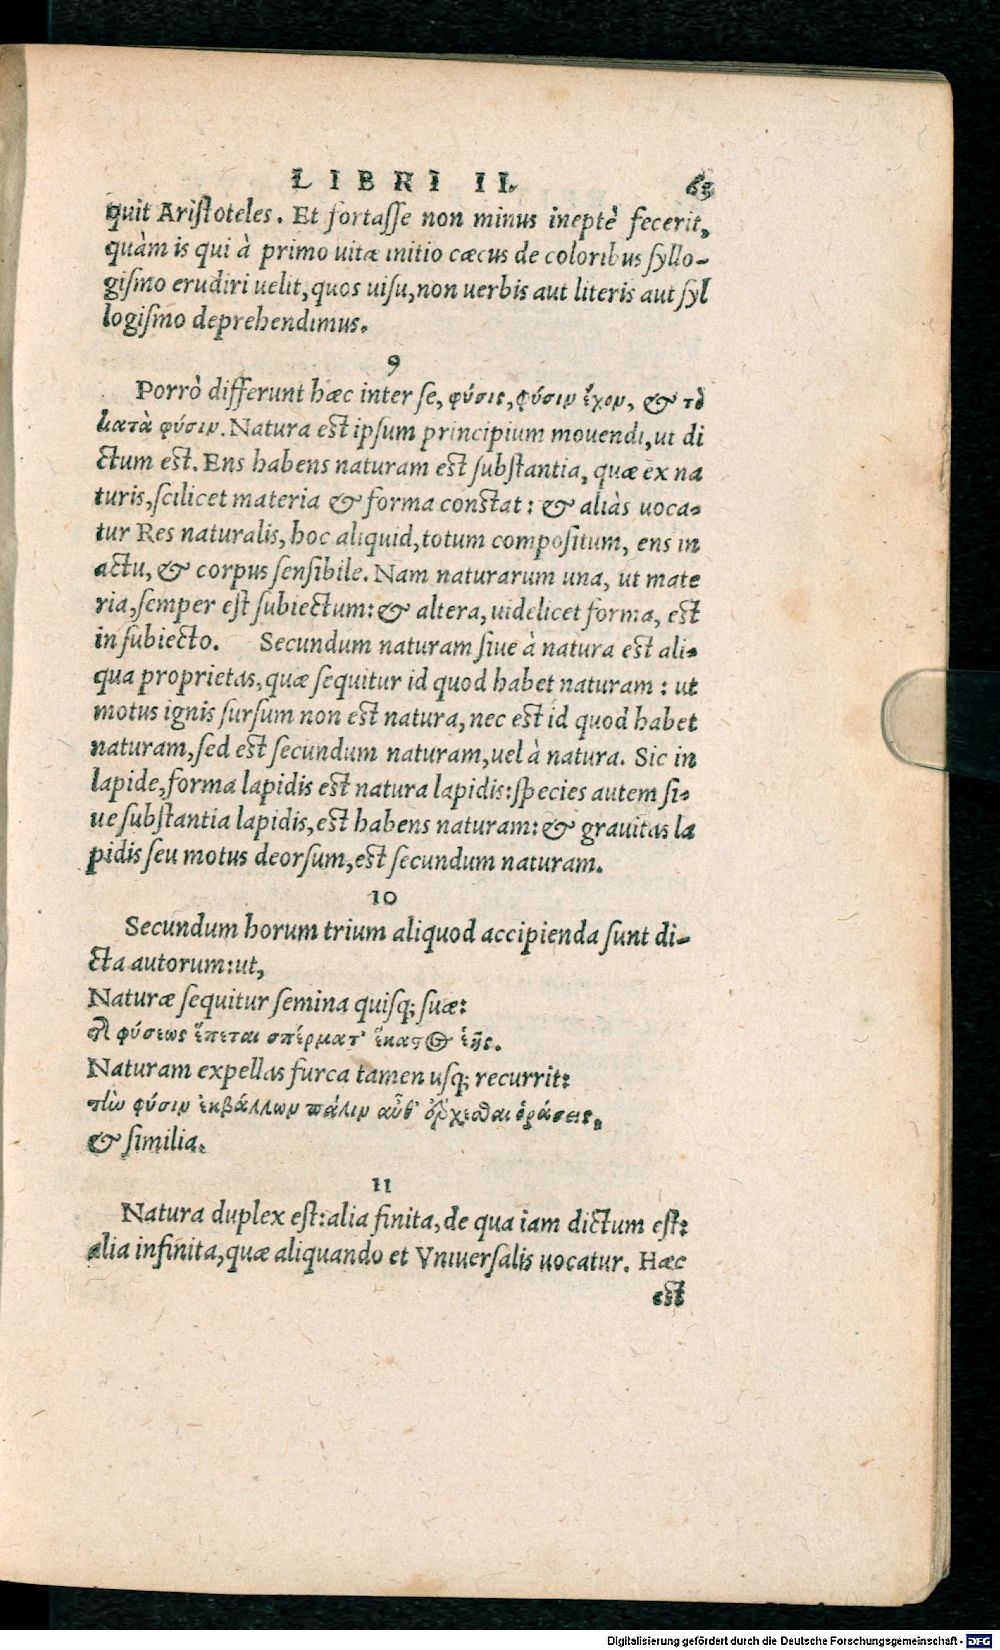 LIBRI II. 63
quit Aristoteles. Et fortasse non minus ineptè fecerit,
quàm is qui à primo uitæ initio cæcus de coloribus syllo-
gismo erudiri uelit, quos uisu, non uerbis aut literis aut syl
logismo deprehendimus.
9
Porrò differunt hæc inter se, φύσις, φύσιν ἔχον, & τὸ
κατὰ φύσιν. Natura est ipsum principium mouendi, ut di
ctum est. Ens habens naturam est substantia, quæ ex na
turis, scilicet materia & forma constat: & aliàs uoca-
tur Res naturalis, hoc aliquid, totum compositum, ens in
actu, & corpus sensibile. Nam naturarum una, ut mate
ria, semper est subiectum: & altera, uidelicet forma, est
in subiecto. Secundum naturam siue à natura est ali-
qua proprietas, quæ sequitur id quod habet naturam: ut
motus ignis sursum non est natura, nec est id quod habet
naturam, sed est secundum naturam, uel à natura. Sic in
lapide, forma lapidis est natura lapidis: species autem si-
ue substantia lapidis, est habens naturam: & grauitas la
pidis seu motus deorsum, est secundum naturam.
10
Secundum horum trium aliquod accipienda sunt di-
cta autorum: ut,
Naturæ sequitur semina quisq; suæ:
φύσεως ἕπεται σπέρματ' ἕκαστος ἑῆς.
Naturam expellas furca tamen usq; recurrit:
τὴν φύσιν ἐκβάλλων πάλιν αὖθ'
& similia.
11
Natura duplex est: alia finita, de qua iam dictum est:
alia infinita, quæ aliquando et Vniuersalis uocatur. Hæc
est
Digitalisierung gefördert durch die Deutsche Forschungsgemeinschaft - DFG